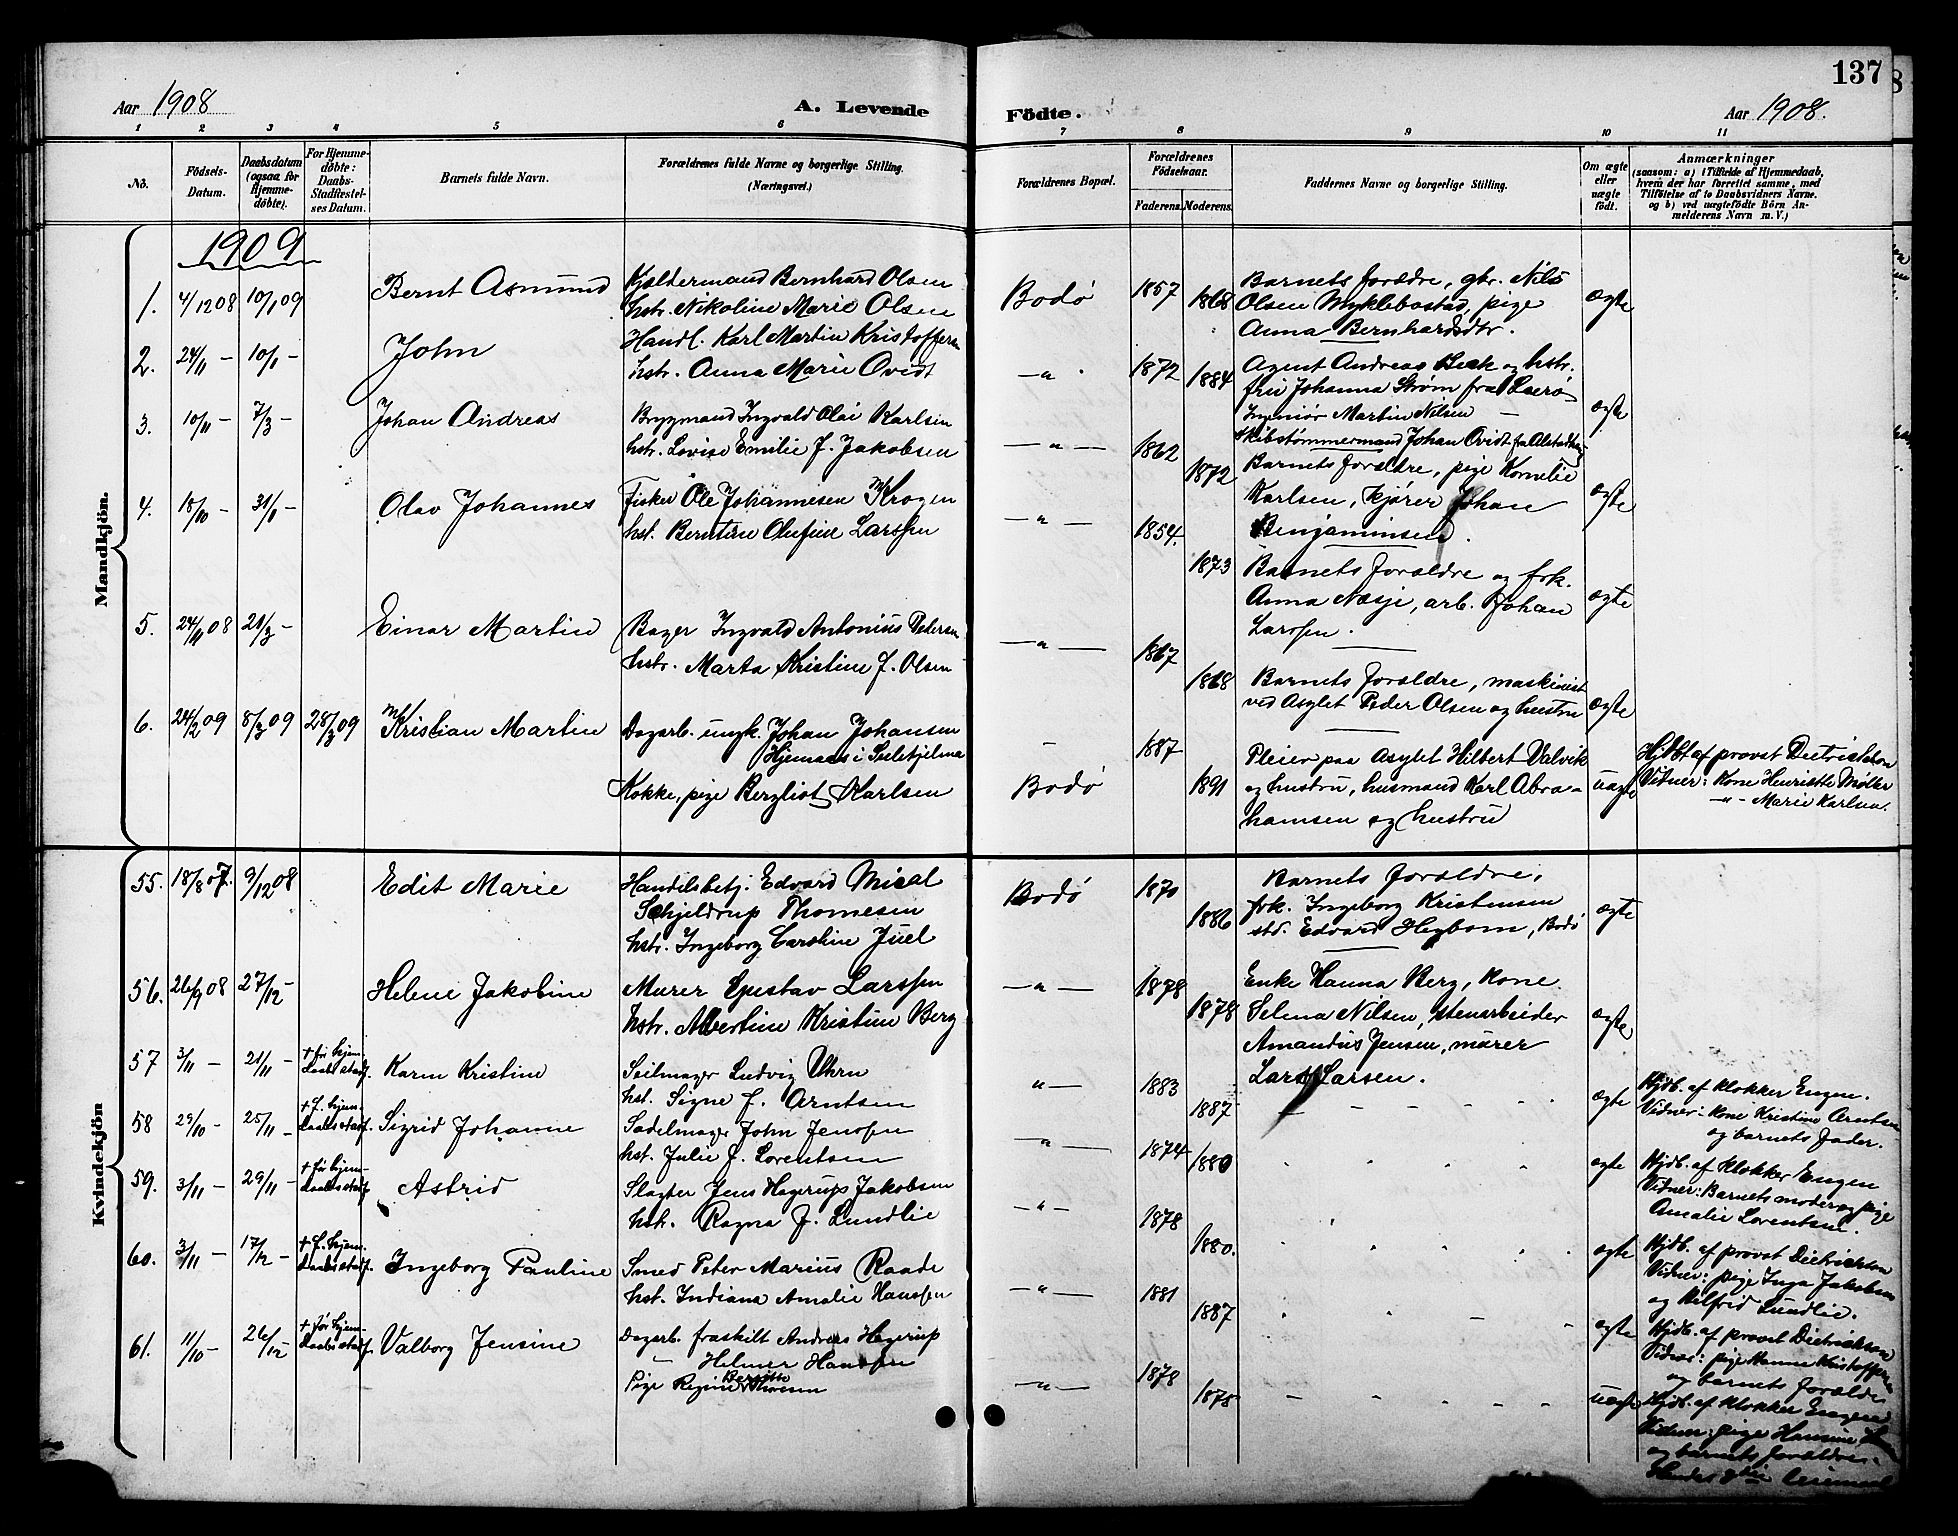 Aar 1908
A. Levende
Födte.
Aar 1908.
137
1
2
3
4
5
6
7
8
9
10
11
No.
Födsels-
Datum.
Daabsdatum
(ogsaa for
Hjemme-
döbte).
For Hjemme-
döbte:
Daabs-
Stadfæstel-
ses Datum.
Barnets fulde Navn.
Forældrenes fulde Navne og borgerlige Stilling.
(Næringsvei.)
Forældrenes Bopæl.
Forældrenes
Födselsaar.
Faderens.
Moderens.
Faddernes Navne og borgerlige Stilling.
Om ægte
eller
uægte
födt.
Anmærkninger
(saasom: a) i Tilfælde af Hjemmedaab,
hvem der har forrettet samme, med
Tilföielse af to Daabsvidners Navne.
og b) ved uægtefödte Börn An-
melderens Navn m. V.)
Mandkjön.
1909
1. 4/12 08 10/1 09 Bernt Asmund
Kjældermand Bernhard Olsen
hstr. Nikoline Marie Olsen
Bodø 1857 1868
Barnets forældre, gbr. Nils
Olsen Myklebostad, pige
Anna Bernhardsdtr.
ægte
2. 24/11 – 10/1 – John
Handl. Karl Martin Kristoffersen
hstr. Anna Marie Qvidt
– " – 1872 1884
Agent Andreas Beck og hstr.
fru Johanna Strøm fra
Ingeniør Martin Nilsen –
Skibstømmermand Johan Qvidt fra
ægte
3. 10/11 – 7/3 – Johan Andreas
Brygmand Ingvald Olai Karlsen
hstr. Lovise Emilie f. Jakobsen
– " – 1862 1872
Barnets forældre, pige Kornelie
Karlsen, kjører Johan
Benjaminsen.
ægte
4. 18/10 – 31/1 – Olav Johannes
Fisker Ole Johannesen Krogen
hst. Berntine Olufine Larssen
– " – 1854. 1873
Barnets forældre og frk.
Anna Næsje, arb. Johan
Larssen.
ægte
5. 24/11 08 21/3 – Einar Martin
Bager Ingvald Antonius Petersen
hstr. Marta Kristine f. Olsen
– " – 1867 1868
Barnets forældre, maskinist
ved Asylet Peder Olsen og hustru
ægte
6. 24/2 09 8/3 09 28/3 09 Kristian Martin
Dagarb. ungk. Johan Johansen
Hjemaas i
Kokke, pige Bergliot Karlsen
Bodø 1887 1891
Pleier paa Asylet Hilbert Valvik
og hustru, husmand Karl Abra-
hamsen og hustru
uægte
Hjdbt af provst Dietrichson
Vidner: Kone Henriette Møller
– " – Marie Karlsen.
Kvindekjön
55. 18/8 07. 9/12 08 Edit Marie
Handelsbetj. Edvard Mical
Schjeldrup Thomesen
hstr. Ingeborg Caroline Juel
Bodø 1870 1886
Barnets forældre,
frk. Ingeborg Kristensen
std. Edvard Hegbom, Bodø
ægte
56. 26/9 08 27/12 – Helene Jakobine
Murer Gustav Larssen
hstr. Albertine Kristine Berg
– " – 1878 1878
Enke Hanna Berg, Kone
Selma Nilsen, stenarbeider
Amandus Jensen, murer
Lars Larsen.
ægte
57 3/11 – 21/11 – + før hjem-
daabs stadf. Karen Kristine
Seilmager Ludvig Uhre
hst. Signe f. Arntsen
" – 1883 1887
ægte
Hjdb. af klokker Engen.
Vidner: Kone Kristine Arntsen
og barnets fader.
58 29/10 – 25/11 – + f. hjem-
daabs stadf. Sigrid Johanne
Sadelmager John Jenssen
hst. Julie f. Lorentsen
" – 1874 1880
ægte
Hjdb. af Klokker Engen
Vidner: Barnets moder og pige
Amalie Lorentsen.
59. 3/11 – 29/11 – + før hjem-
daabs stadf. Astrid
Slagter Jens Hagerup Jakobsen
hst. Ragna f. Lundlie
– " – 1878 1880.
ægte
Hjdb. af provst Dietrichson
Vidner: pige Inga Jakobsen
og Hilfrid Lundlie.
60. 3/11 – 17/12 – + f. hjem-
daabs stadf. Ingeborg Pauline
Smed Peter Marius Raade
hst. Indiana Amalie Hanssen
– " – 1881 1887
ægte
Hjdb. af provst Dietrichson
Vidner: pige Hanna Kristoffersen
og barnets forældre
61. 11/10 – 26/12 – + før hjem-
daabs stadf. Valborg Jensine
Dagarb. fraskilt Andreas Hagerup
– Helmer Hanssen
Pige Regine Bergitte
– " – 1878 1878
uægte
Hjdb. af klokker Engen
Vidner: pige Hansine
og barnets forældre.